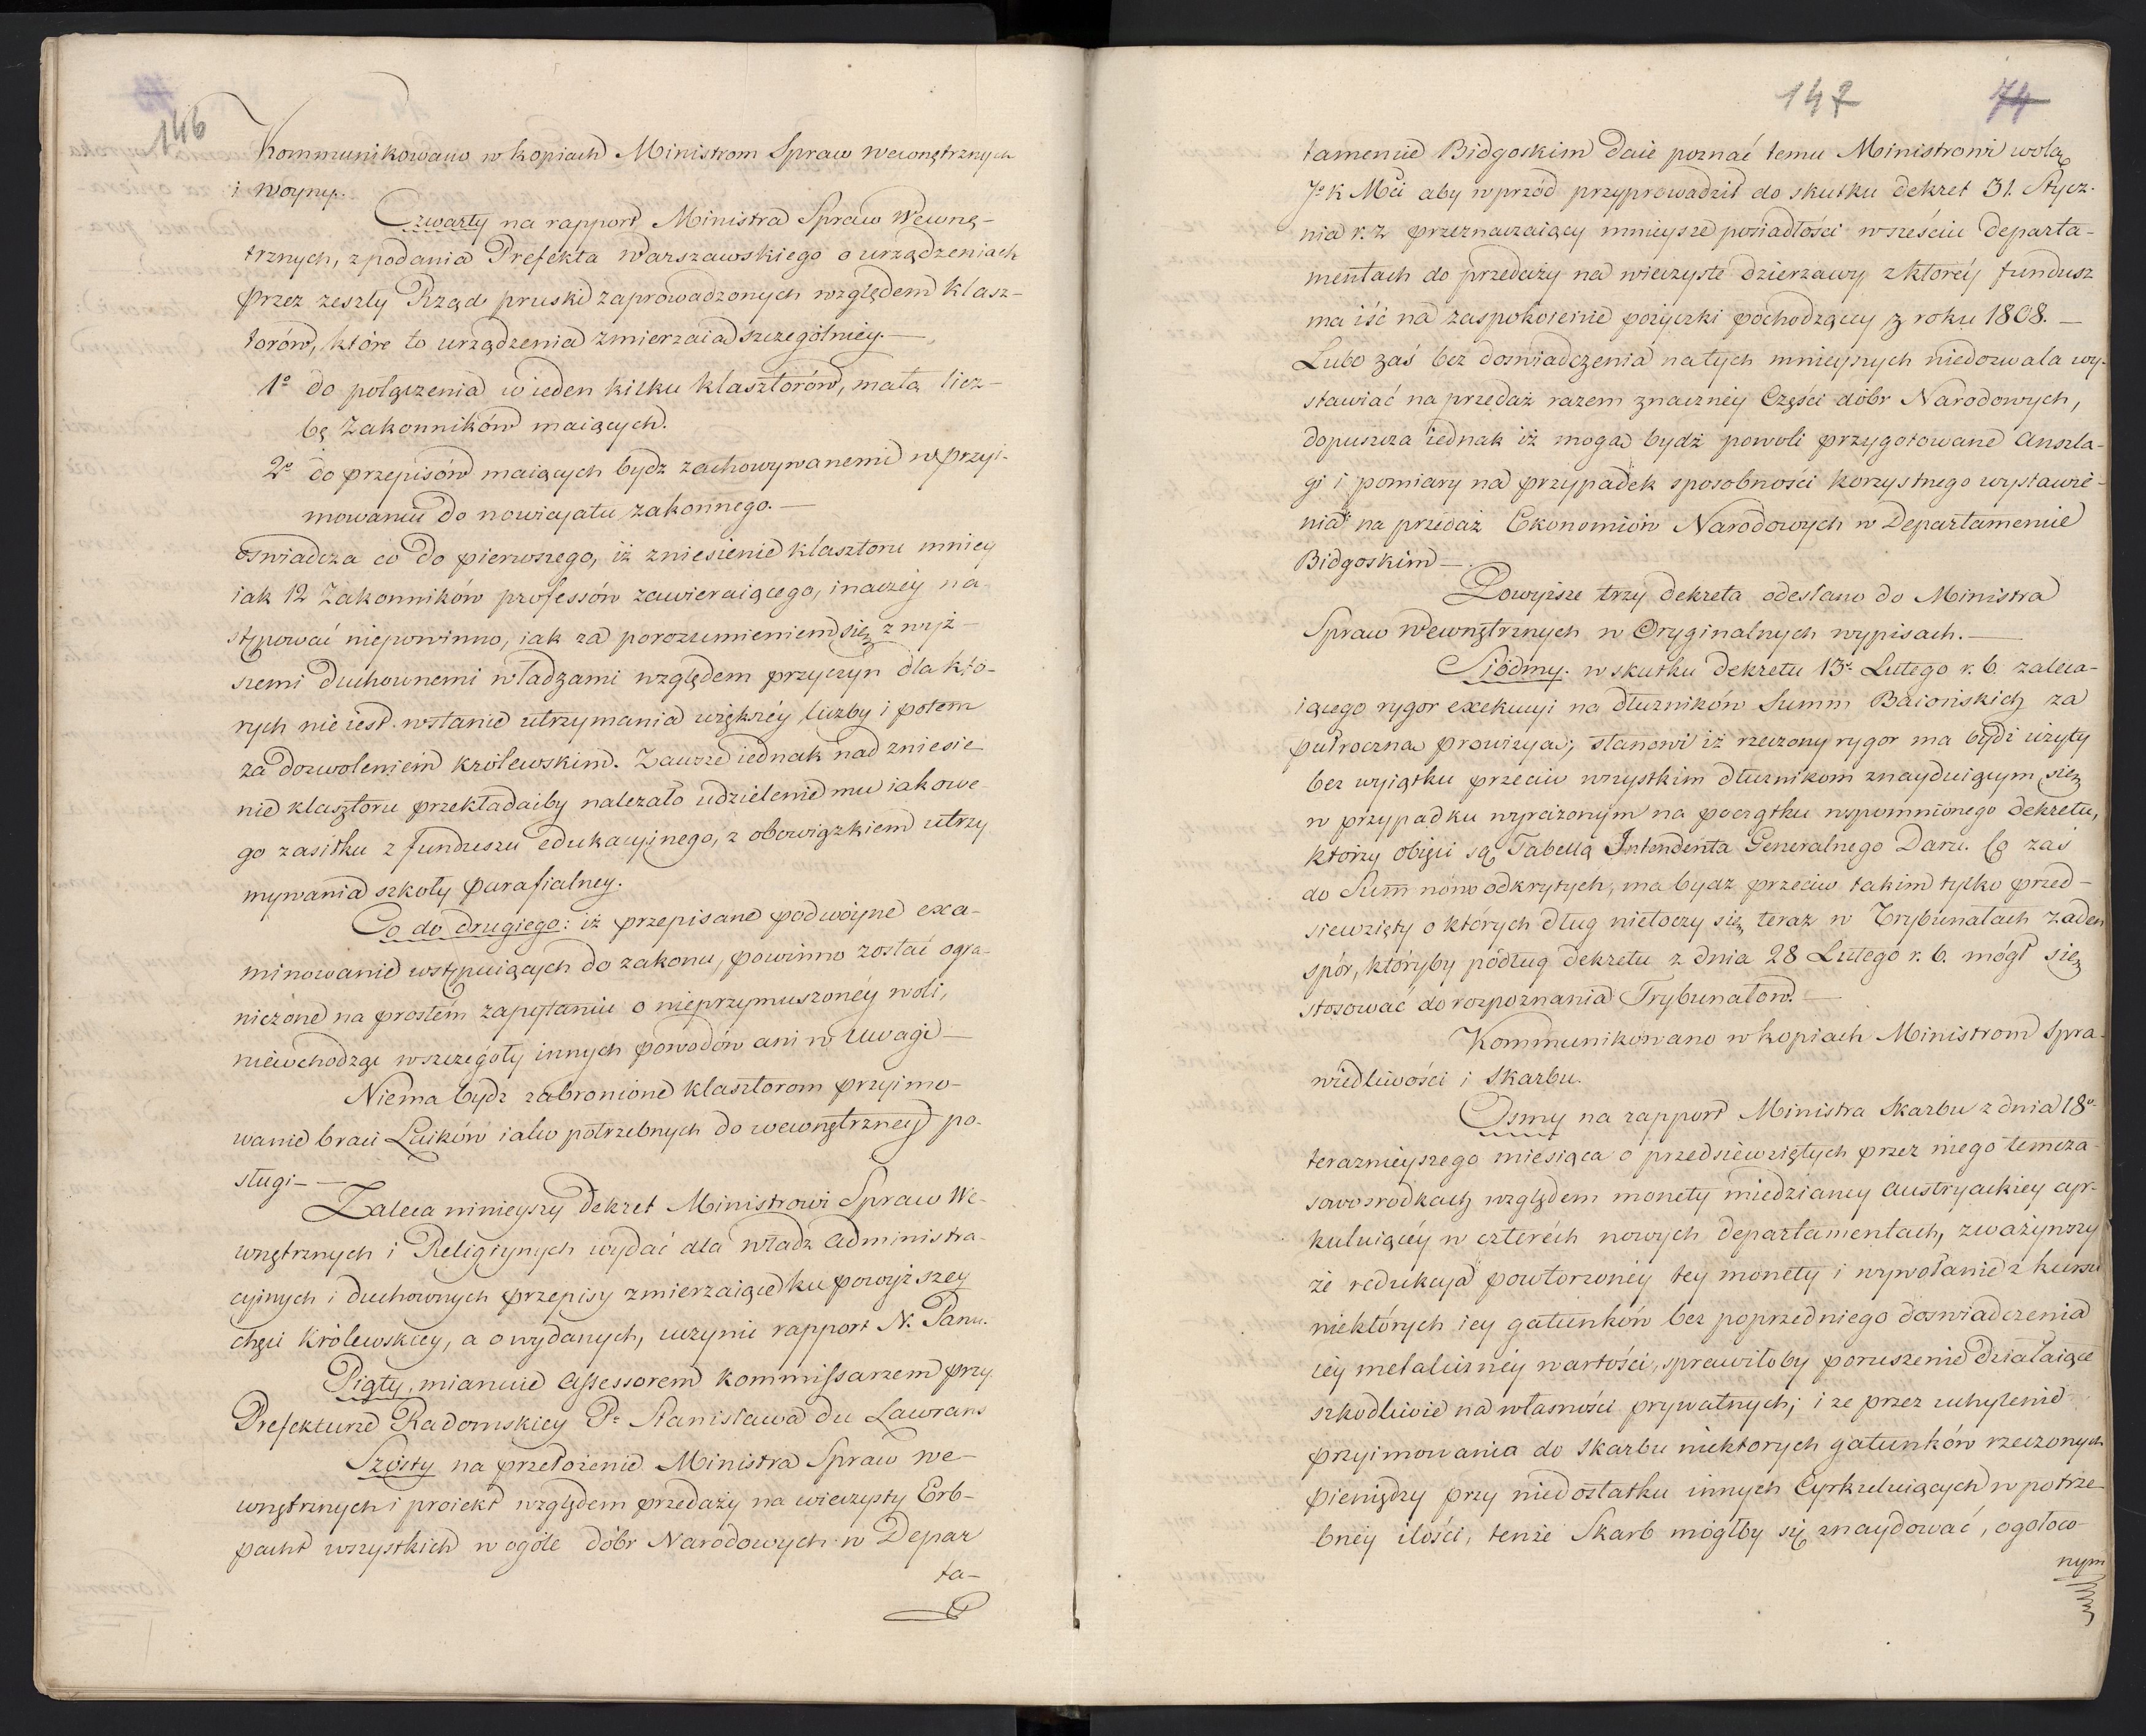 146
Kommunikowano w kopiach Ministrom Spraw wewnętrznych
i woyny.
Czwarty na rapport Ministra Spraw Wewnę-
trznych, z podania Prefekta Warszawskiego o urządzeniach
przez zeszły Rząd pruski zaprowadzonych względem klasz-
torów, które to urządzenia zmierzaią szczególniey. —
1º do połączenia w ieden kilku klasztorów, małą licz-
bę Zakonników maiących.
2º do przepisów maiących bydz zachowywanemi w przyi-
mowaniu do nowicyatu zakonnego. —
oswiadcza co do pierwszego, iż zniesienie klasztoru mniey
iak 12 Zakonników professów zawieraiącego, inaczéy na-
stępować niepowinno, iak za porozumieniem się z wyż-
szemi duchownemi władzami względem przyczyn dla któ-
rych nie iest wstanie utrzymania większéy liczby i potem
za dozwoleniem królewskim. Zawsze iednak nad zniesie
nie klasztoru przekładaćby należało udzielenie mu iakowe-
go zasiłku z funduszu edukacyinego, z obowiązkiem utrzy
mywania szkoły parafialney.
Co do drugiego: iż przepisane podwóyne exa-
minowanie wstępuiących do zakonu, powinno zostać ogra-
niczone na prostém zapytaniu o nieprzymuszonéy woli,
niewchodząc wszczegóły innych powodów ani w Uwagi —
Niema bydz zabronione klasztorom przyimo-
wanie braci Laików iako potrzebnych do wewnętrzney po-
sługi — —
Zaleca ninieyszy dekret Ministrowi Spraw We-
wnętrznych i Religiynych wydać dla władz administra-
cyinych i duchownych przepisy zmierzaiące ku powyższey
chęci królewskiey, a o wydanych, uczynić rapport N. Panu.
Piąty, mianuie Assessorem kommissarzem przy
Prefekturze Radomskiey P. Stanisława du Lawrans
Szósty na przełożenie Ministra Spraw we-
wnętrznych i proiekt względem przedaży na wieczysty Erb-
pacht wszystkich w ogóle dóbr Narodowych w Depar
ta-
147 74
tamencie Bidgoskim daie poznać temu Ministrowi wolą
Jº K Mci aby wprzód przyprowadził do skutku dekret 31. Stycz-
nia r. z przeznaczaiący mnieysze posiadłości w sześciu departa-
mentach do przedaży na wieczyste dzierzawy, z któréy fundusz
ma iść na zaspokoienie pożyczki pochodzący z roku 1808. —
Lubo zaś bez doswiadczenia na tych mnieyszych niedozwala wy-
stawiać na przedaż razem znacznéy Części dóbr Narodowych,
dopuszcza iednak iż mogą bydź powoli przygotowane Anszla-
gi i pomiary na przypadek sposobności korzystnego wystawie-
nia na przedaż Ekonomiów Narodowych w Departamencie
Bidgoskim —
Powyższe trzy dekreta odesłano do Ministra
Spraw Wewnętrznych w Oryginalnych wypisach. —
Siódmy. w skutku dekretu 13º Lutego r. b. zaleca-
iącego rygor exekucyi na dłużników Summ Baiońskich za
pułroczną prowizyą; stanowi iż rzeczony rygor ma bydź użyty
bez wyiątku przeciw wszystkim dłużnikom znayduiącym się
w przypadku wyrażonym na początku wspomnionego dekretu,
którzy obięci są Tabellą Intendenta Generalnego Daru. Co zaś
do Summ nowo odkrytych, ma bydz przeciw takim tylko przed-
siewzięty o których dług nietoczy się teraz w Trybunałach żaden
spór, któryby podług dekretu z dnia 28 Lutego r. b. mógł się
stosować do rozpoznania Trybunałów. —
Kommunikowano w kopiach Ministrom Spra-
wiedliwości i Skarbu.
Osmy na rapport Ministra Skarbu z dnia 18º
terazmieyszego miesiąca o przedsiewziętych przez niego temcza-
sowo srodkach względem monety miedzianey austryackiey cyr-
kuluiącéy w czterech nowych departamentach, zważywszy
że redukcya powtorzoney tey monety i wywołanie z kursu
niektórych iey gatunków bez poprzedniego doswiadczenia
iéy metaliczney wartości, sprawiłoby poruszenie działaiące
szkodliwie na własności prywatnych; i ze przez uchylenie
przyimowania do Skarbu niektorych gatunków rzeczonych
pieniędzy przy niedostatku innych Cyrkuluiących w potrze-
bnéy ilości, tenże Skarb mógłby się znaydować, ogołoco-
nym